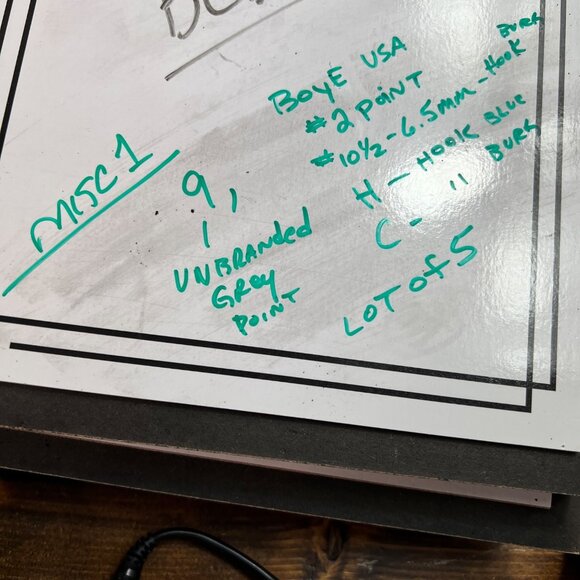 MISC 1
9,
UNBRANDED
GREY
POINT
BOYE USA
#2 POINT
#10½ - 6.5mm - HOOK BURG
H - HOOK BLUE
C - " BURG
LOT OF 5